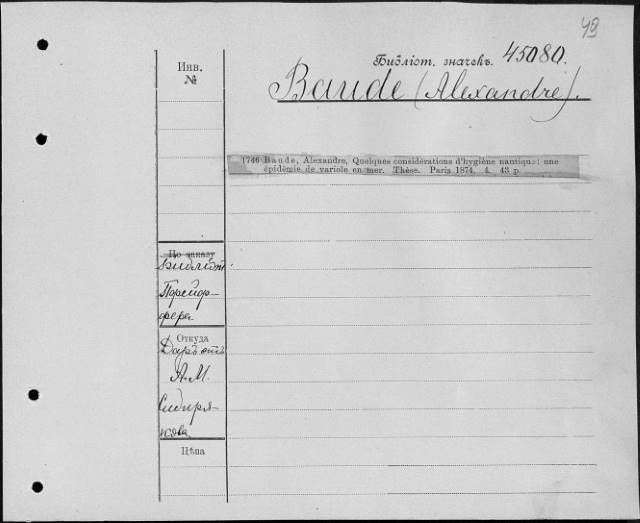 43
Библіот. значекъ. 45080.
Baude (Alexandre).
Инв.
№
1746 Baude, Alexandre, Quelques considérations d'hygiène nautique: une
épidémie de variole en mer. Thèse. Paris 1874. 4. 43 p.
По заказу
Библіот.
Порейор-
фера
Откуда
Даръ отъ
А. М.
Сибиря-
кова
Цѣна